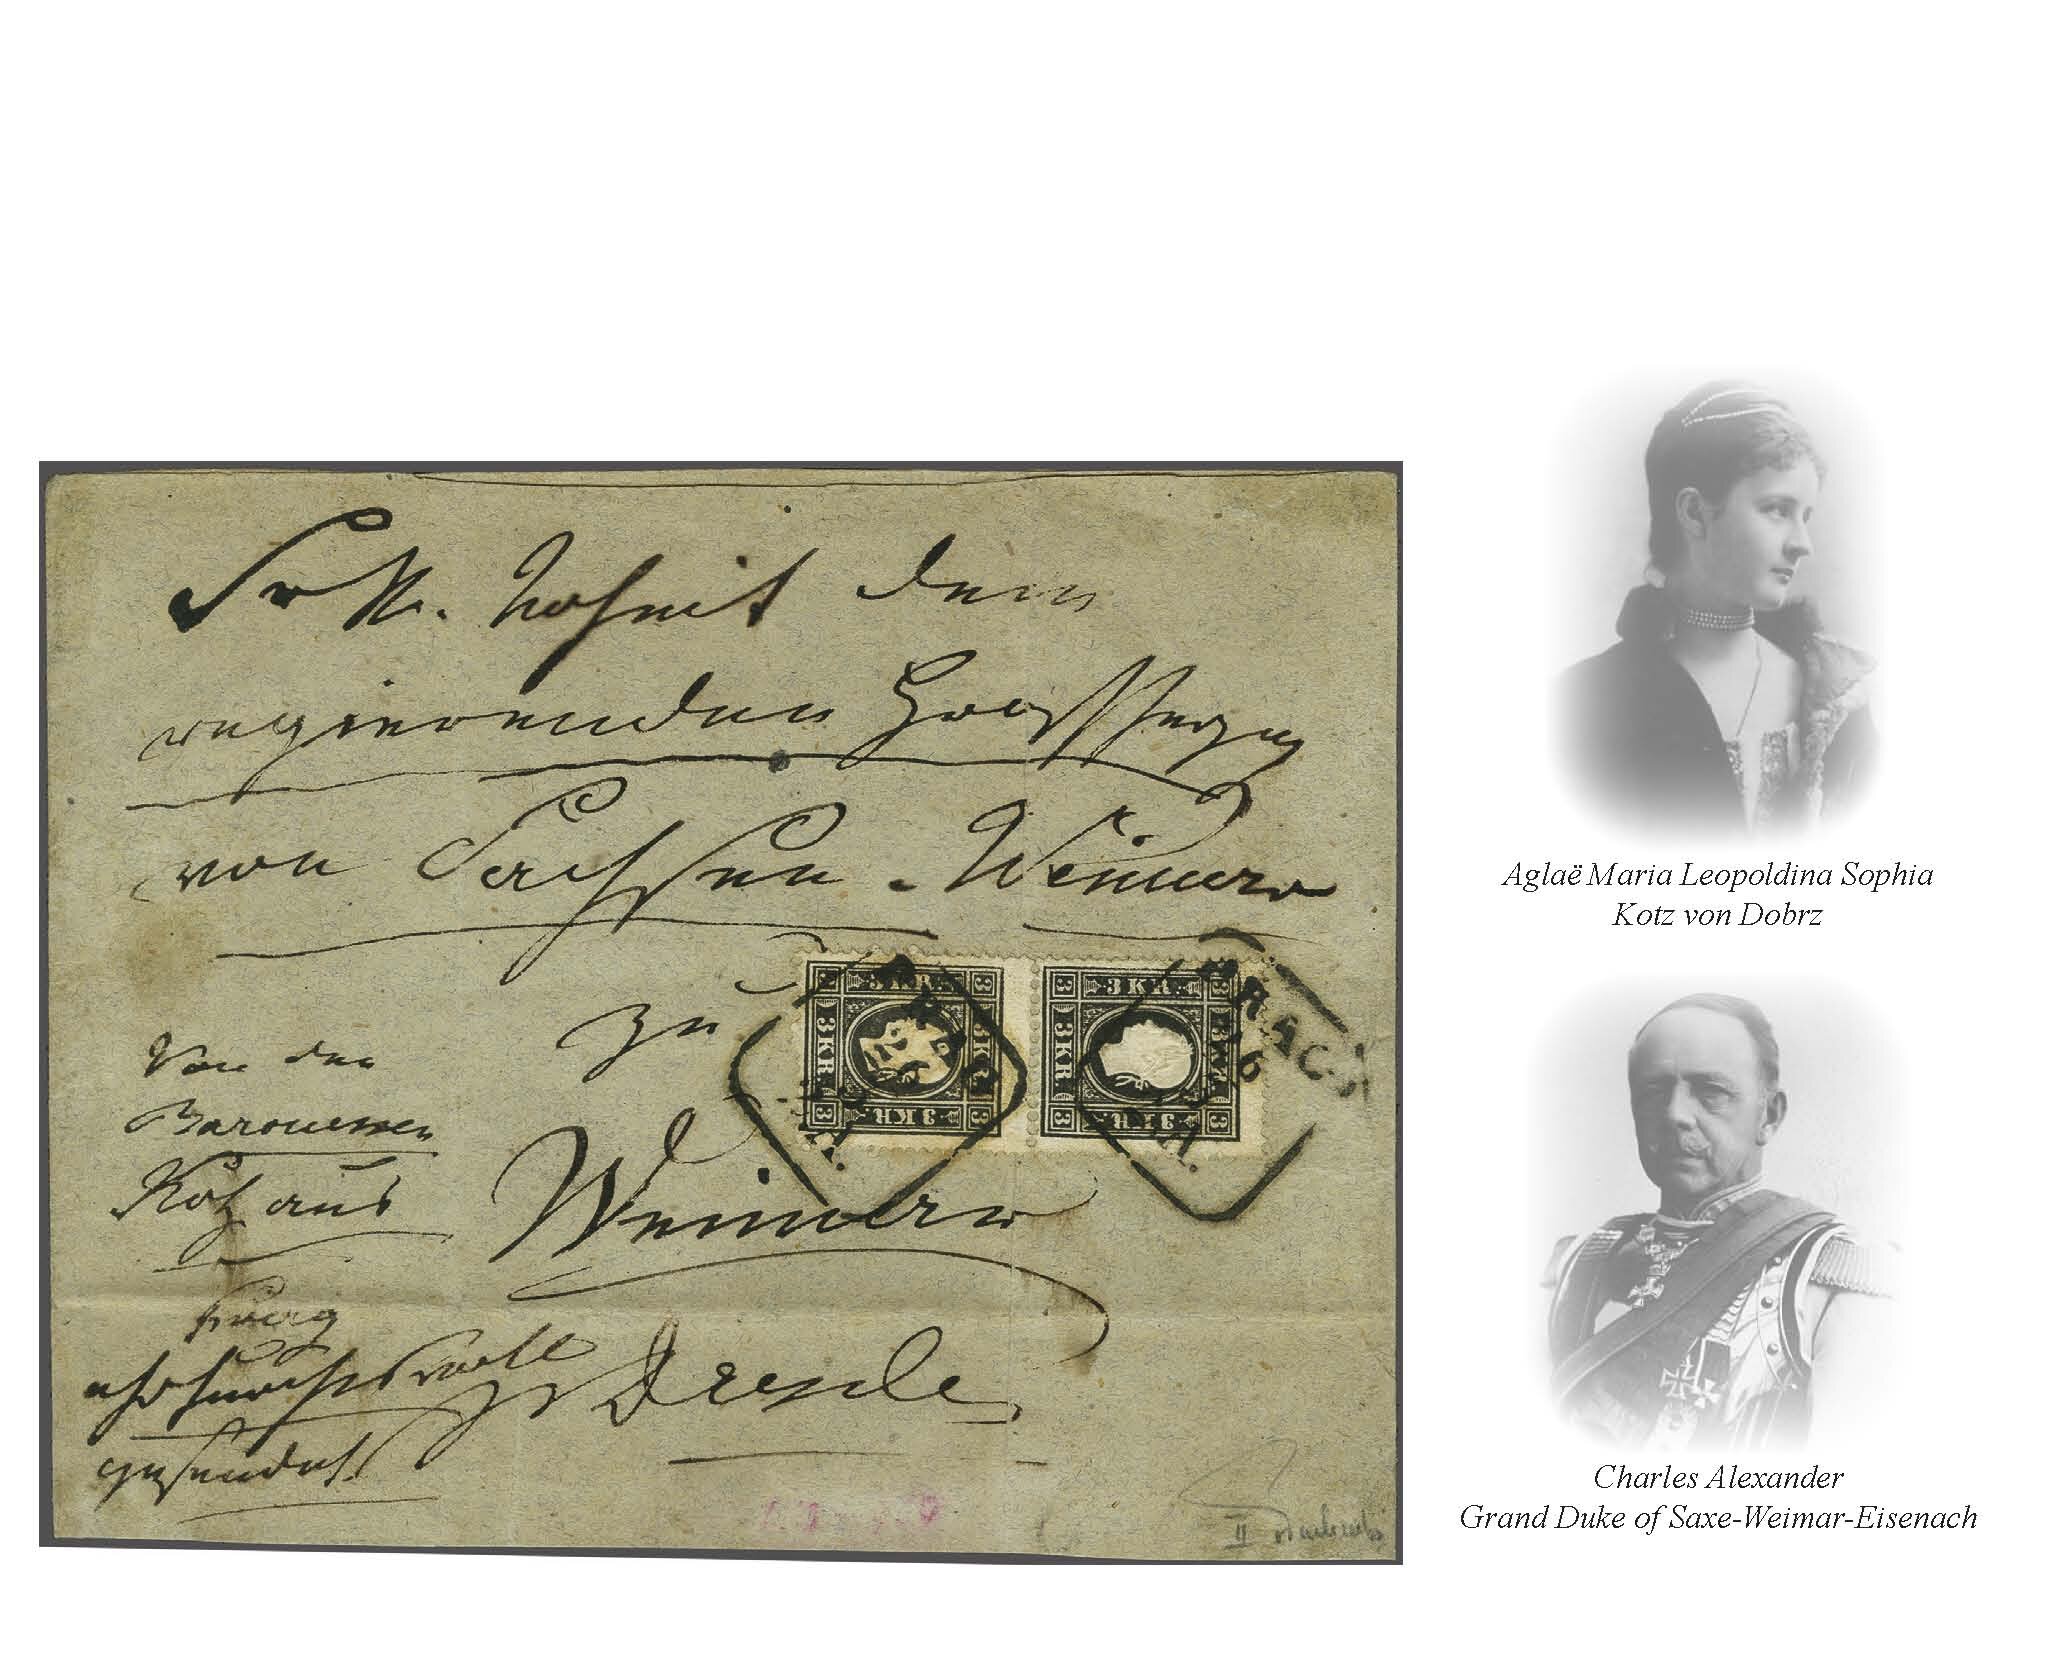 Sr K. Hoheit dem
regierenden Grossherzog
von Sachsen-Weimar
zu
Weimar
Von der
Baronessen
Kotz aus
Prag
ehrfurchtsvoll
gesendet
3 KR.
3 KR.
3 KR.
3 KR.
3 KR.
3 KR.
3 KR.
3 KR.
PRAG
PRAG
II
Aglaë Maria Leopoldina Sophia
Kotz von Dobrz
Charles Alexander
Grand Duke of Saxe-Weimar-Eisenach